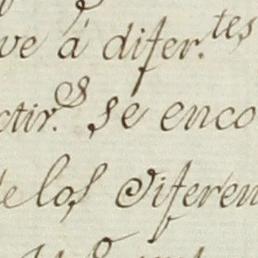 ve á difer.tes
ctir.s se enco
e los Diferen